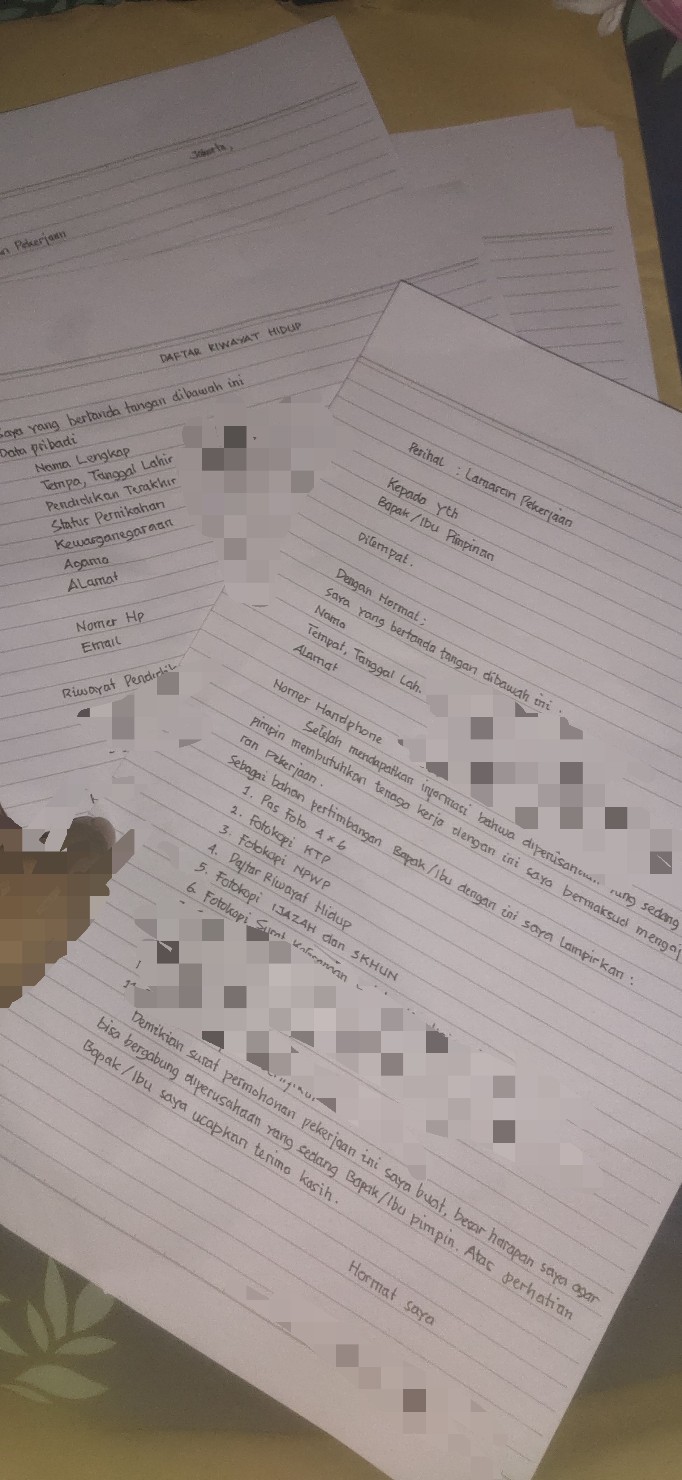 Jakarta,
Pekerjaan
DAFTAR RIWAYAT HIDUP
Saya yang bertanda tangan dibawah ini
Data pribadi
Nama Lengkap
Tempa, Tanggal Lahir
Pendidikan Terakhir
Status Pernikahan
Kewarganegaraan
Agama
ALamat
Nomer Hp
Email
Riwayat
Perihal : Lamaran Pekerjaan
Kepada Yth
Bapak/Ibu Pimpinan
Ditempat.
Dengan Hormat;
Saya yang bertanda tangan dibawah ini :
Nama
Tempat, Tanggal Lah.
ALamat
Nomer Handphone
Setelah mendapatkan informasi bahwa yang sedang
pimpin membutuhkan tenaga kerja dengan ini saya bermaksud
ran Pekerjaan.
Sebagai bahan pertimbangan Bapak/Ibu dengan ini saya lampirkan :
1. Pas Foto 4×6
2. Fotokopi KTP
3. Fotokopi NPWP
4. Daftar Riwayat Hidup
5. Fotokopi IJAZAH dan SKHUN
6. Fotokopi Surat
Demikian surat permohonan pekerjaan ini saya buat, besar harapan saya agar
bisa bergabung diperusahaan yang sedang Bapak/Ibu pimpin. Atas perhatian
Bapak/Ibu saya ucapkan terima kasih.
Hormat saya